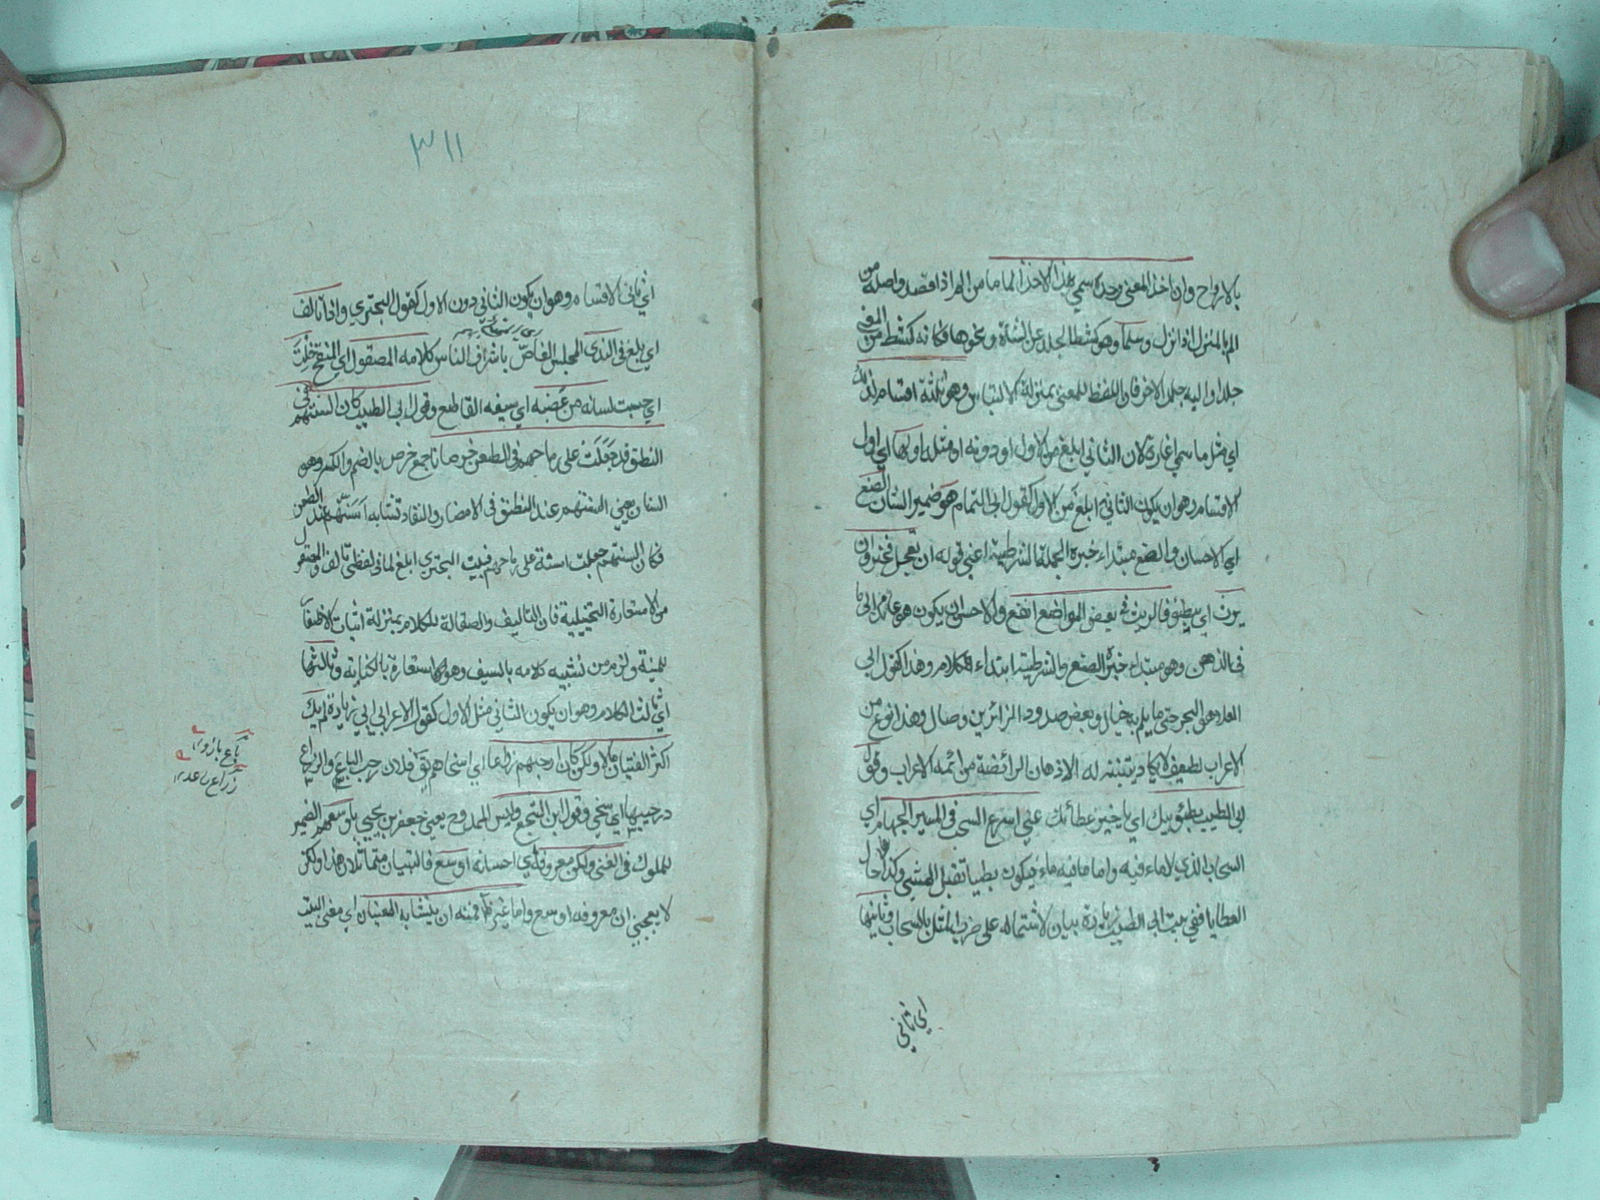 بالارواح وان اخذ المعنى وحده سمي هذا الاخذ الماما من الم اذا قصد واصله من
الم بالمنزل اذا نزل وسلخا وهو كشط الجلد عن الشاة ونحوها فكانه كشط من المعنى
جلدا والبه جلدا اخر فان اللفظ للمعنى بمنزلة الالباس وهو ثلثة اقسام كذلك
اي مثل ما سمي اغارة لان الثاني ابلغ من الاول او دونه او مثله اولها اي اول
الاقسام وهو ان يكون الثاني ابلغ من الاول كقول ابي التمام هو ضمير الشان الصنع
اي الاحسان والصنع مبتداء خبره الجملة الشرطية اعني قوله ان تعجل فخير وان
يرث اي يبطئ فالريث في بعض المواضع انفع والاحسن ان يكون هو عايدا الى ما
في الذهن وهو مبتداء خبره الصنع والشرطية ابتداء الكلام وهذا كقول ابي
العلا هو الهجر حتى ما يلم خيال وبعض صدود الزائرين وصال وهذا نوع من
الاعراب لطيف لا يكاد يتنبه له الا الاذهان الرائضة من ائمة الاعراب وقول
ابي الطيب بطؤ سيبك اي تاخير عطائك عني اسرع السحب في المسير الجهام اي
السحاب الذي لا ماء فيه واما ما فيه ماء فيكون بطيا ثقيل المشي وكذا حال
العطايا ففي بيت ابي الطيب زيادة بيان لاشتماله على ضرب المثل بالسحاب وثانيها
اي ثاني
٣١١
اي ثاني الاقسام وهو ان يكون الثاني دون الاول كقول البحتري واذا تالف
اي بلغ في الندي المجلس الغاص باشراف الناس كلامه المصقول اي المنقح خلت
اي حسبت لسانه من عضبه اي سيفه القاطع وقول ابي الطيب كان السنهم في
النطق قد جعلت على رماحهم في الطعن خرصانا جمع خرص بالضم والكسر وهو
السنان يعني السنتهم عند النطق في الامضاء والنفاد تشابه اسنتهم عند الطعن
فكان السنتهم جعلت اسنة على رماحهم فبيت البحتري ابلغ لما في لفظي تالف والمصقول
من الاستعارة التخييلية فان التاليف والصقالة للكلام بمنزلة اثبات الاظفار
للمنية ولزم من تشبيه كلامه بالسيف وهو استعارة بالكناية وثالثها
اي ثالث الاقسام وهو ان يكون الثاني مثل الاول كقول الاعرابي ابي زياد ولم يك
اكثر الفتيان مالا ولكن كان ارحبهم ذراعا اي اسخاهم يق فلان رحب الباع والذراع
ورحيبهما اي سخي وقول اشجع وليس الممدوح يعني جعفر بن يحيى باوسعهم الضمير
للملوك في الغنى ولكن معروفه اي احسانه اوسع فالبيتان متماثلان هذا ولكن
لا يعجبني ان معروفه اوسع واما غير الظ فمنه ان يتشابه المعنيان اي معنى البيت
باع بازو